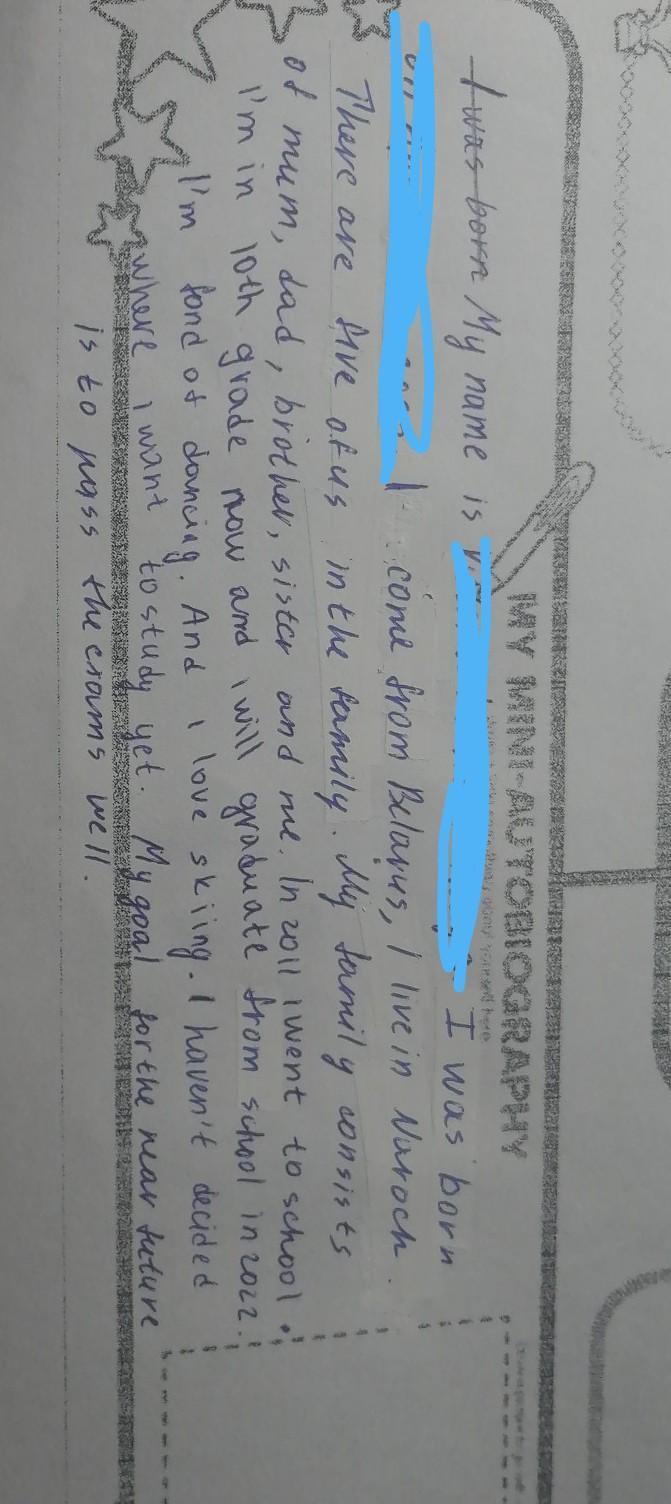 MY MINI-AUTOBIOGRAPHY
I was born My name is I was born
on I come from Belarus, I live in Naroch.
There are five of us in the family. My family consists
of mum, dad, brother, sister and me. In 2011 i went to school.
I'm in 10th grade now and i will graduate from school in 2022.
I'm fond of dancing. And I love skiing. I haven't decided
where i want to study yet. My goal for the near future
is to pass the exams well.